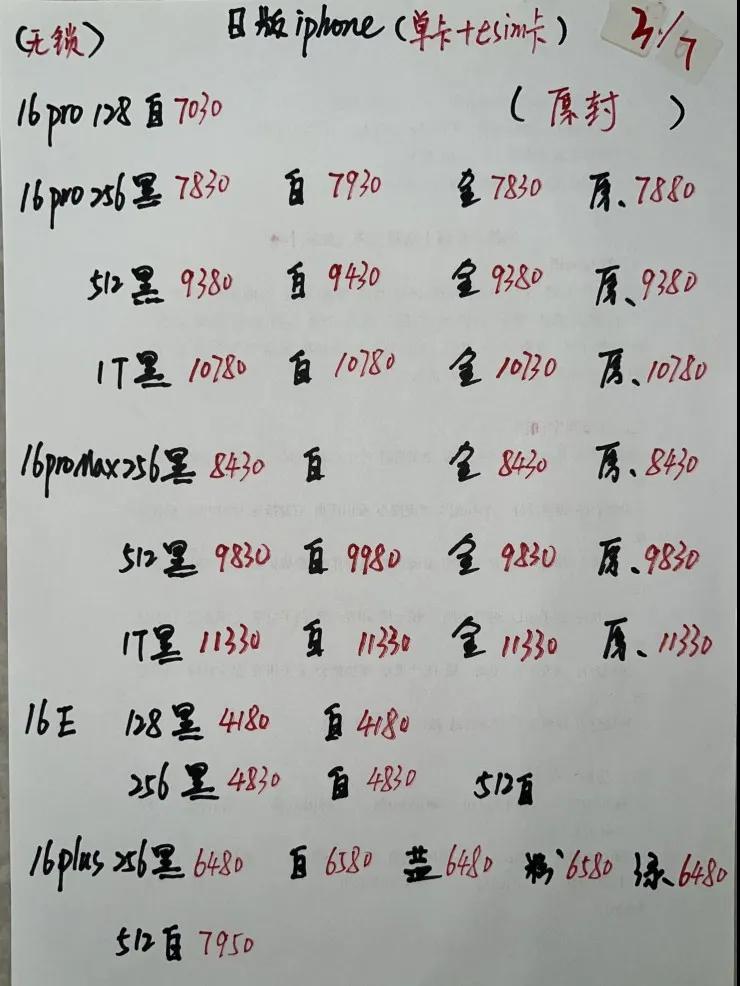 (无锁) 日版iphone(单卡+esim卡) 3/7
16pro 128 白 7030 (原封)
16pro 256 黑 7830 白 7930 金 7830 原、7880
512 黑 9380 白 9430 金 9380 原、9380
1T 黑 10780 白 10780 金 10730 原、10780
16proMax 256 黑 8430 白 金 8430 原、8430
512 黑 9830 白 9980 金 9830 原、9830
1T 黑 11330 白 11330 金 11330 原、11330
16E 128 黑 4180 白 4180
256 黑 4830 白 4830 512 白
16plus 256 黑 6480 白 6580 蓝 6480 粉 6580 绿 6480
512 白 7950